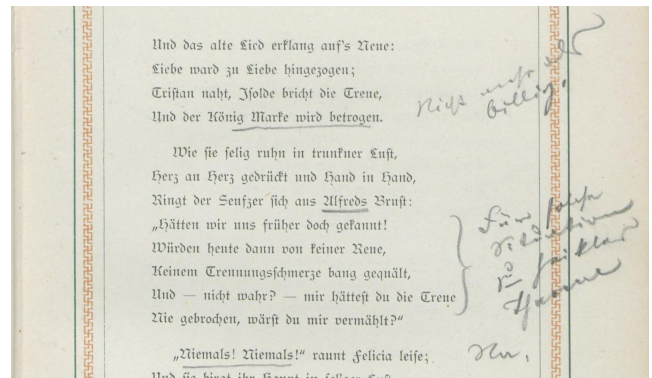 Und das alte Lied erklang auf's Neue:
Liebe ward zu Liebe hingezogen;
Tristan naht, Isolde bricht die Treue,
Und der König Marke wird betrogen.
Nicht mehr als
billig.
Wie sie selig ruhn in trunkner Lust,
Herz an Herz gedrückt und Hand in Hand,
Ringt der Seufzer sich aus Alfreds Brust:
„Hätten wir uns früher doch gekannt!
Würden heute dann von keiner Reue,
Keinem Trennungsschmerze bang gequält,
Und — nicht wahr? — mir hättest du die Treue
Nie gebrochen, wärst du mir vermählt?“
Für solche
Situation
Thema
„Niemals! Niemals!“ raunt Felicia leise;
Na,
Und sie birgt ihr Haupt in seliger Lust